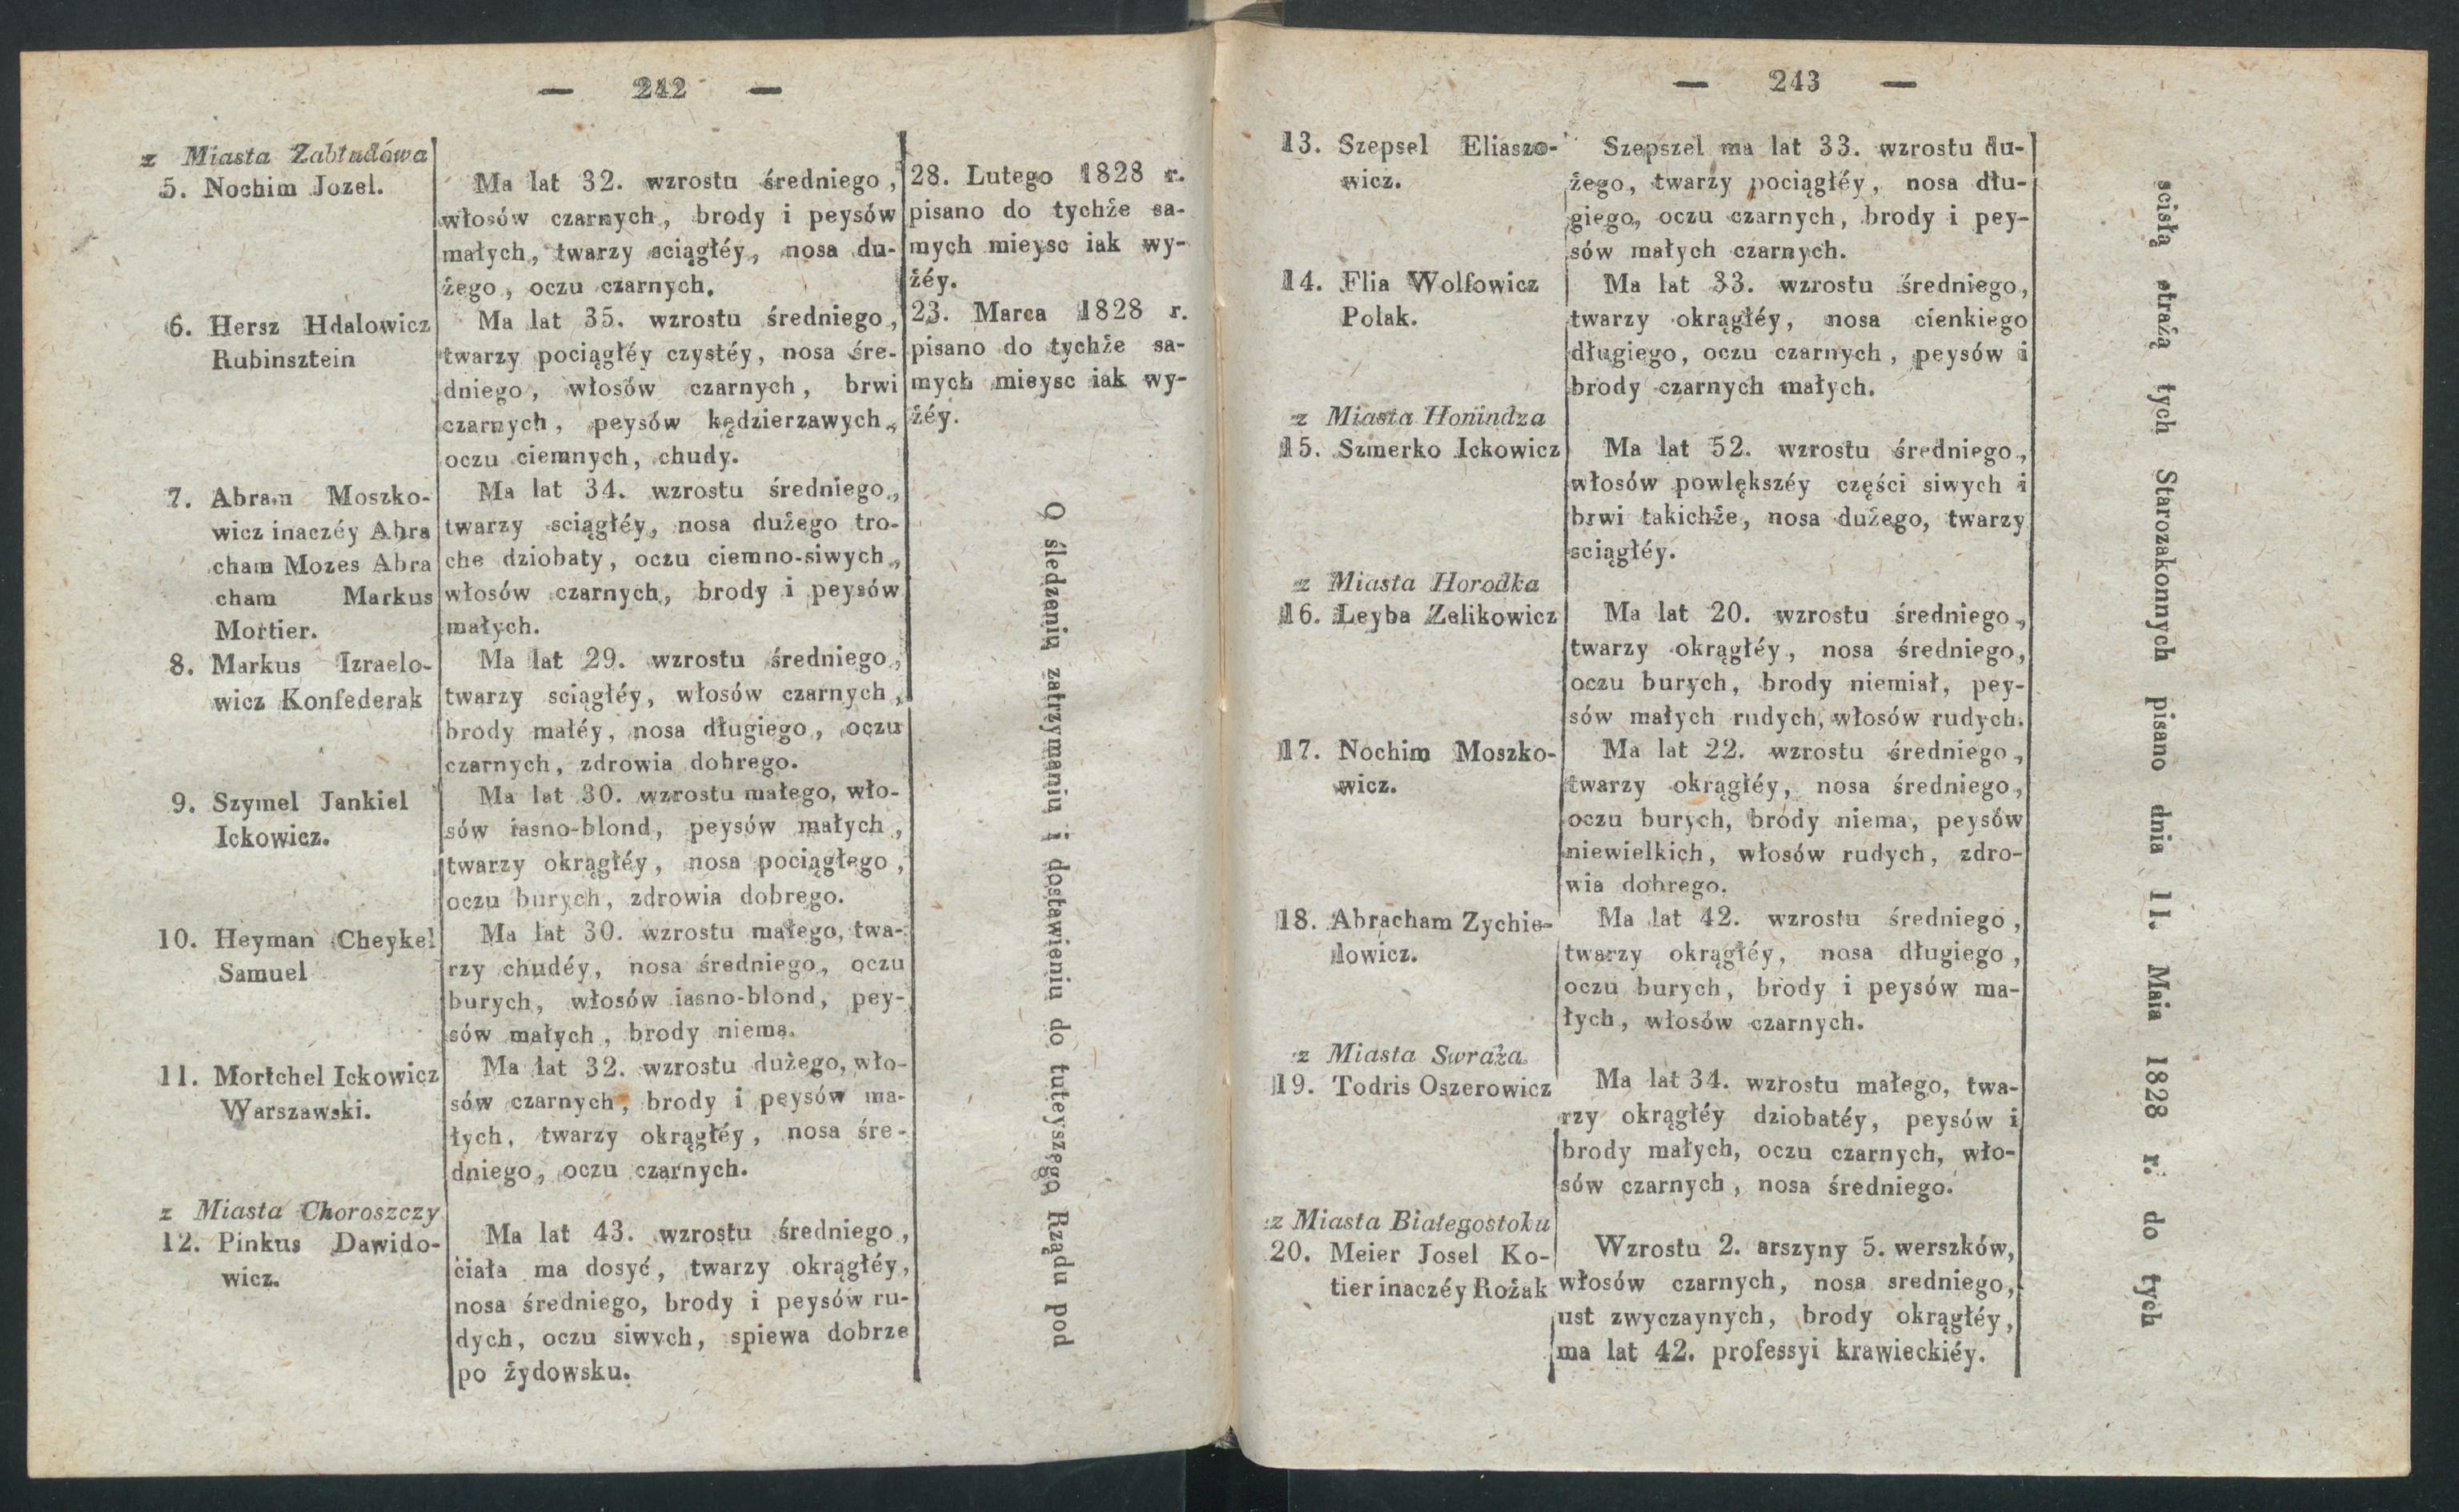 — 242 —
z Miasta Zabłudówa
5. Nochim Jozel.
Ma lat 32. wzrostu średniego,
włosów czarnych, brody i peysów
małych, twarzy sciągłéy, nosa du-
żego, oczu czarnych.
28. Lutego 1828 r.
pisano do tychże sa-
mych mieysc iak wy-
żéy.
6. Hersz Hdalowicz
Rubinsztein
Ma lat 35. wzrostu średniego,
twarzy pociągłéy czystéy, nosa śre-
dniego, włosów czarnych, brwi
czarnych, peysów kędzierzawych,
oczu ciemnych, chudy.
23. Marca 1828 r.
pisano do tychże sa-
mych mieysc iak wy-
żéy.
7. Abram Moszko-
wicz inaczéy Abra
cham Mozes Abra
cham Markus
Mortier.
Ma lat 34. wzrostu średniego,
twarzy sciągłéy, nosa dużego tro-
che dziobaty, oczu ciemno-siwych,
włosów czarnych, brody i peysów
małych.
8. Markus Izraelo-
wicz Konfederak
Ma lat 29. wzrostu średniego,
twarzy sciągłéy, włosów czarnych,
brody małéy, nosa długiego, oczu
czarnych, zdrowia dobrego.
9. Szymel Jankiel
Ickowicz.
Ma lat 30. wzrostu małego, wło-
sów iasno-blond, peysów małych,
twarzy okrągłéy, nosa pociągłego,
oczu burych, zdrowia dobrego.
10. Heyman Cheykel
Samuel
Ma lat 30. wzrostu małego, twa-
rzy chudéy, nosa średniego, oczu
burych, włosów iasno-blond, pey-
sów małych, brody niema.
11. Mortchel Ickowicz
Warszawski.
Ma lat 32. wzrostu dużego, wło-
sów czarnych, brody i peysów ma-
łych, twarzy okrągłéy, nosa śre-
dniego, oczu czarnych.
z Miasta Choroszczy
12. Pinkus Dawido-
wicz.
Ma lat 43. wzrostu średniego,
ciała ma dosyć, twarzy okrągłéy,
nosa średniego, brody i peysów ru-
dych, oczu siwych, spiewa dobrze
po żydowsku.
O śledzeniu zatrzymaniu i dostawieniu do tuteyszego Rządu pod
— 243 —
13. Szepsel Eliaszo-
wicz.
Szepszel ma lat 33. wzrostu du-
żego, twarzy pociągłéy, nosa dłu-
giego, oczu czarnych, brody i pey-
sów małych czarnych.
14. Elia Wolfowicz
Polak.
Ma lat 33. wzrostu średniego,
twarzy okrągłéy, nosa cienkiego
długiego, oczu czarnych, peysów i
brody czarnych małych.
z Miasta Honindza
15. Szmerko Ickowicz
Ma lat 52. wzrostu średniego,
włosów powlększéy części siwych i
brwi takichże, nosa dużego, twarzy
sciągłéy.
z Miasta Horodka
16. Leyba Zelikowicz
Ma lat 20. wzrostu średniego,
twarzy okrągłéy, nosa średniego,
oczu burych, brody niemiał, pey-
sów małych rudych, włosów rudych.
17. Nochim Moszko-
wicz.
Ma lat 22. wzrostu średniego,
twarzy okrągłéy, nosa średniego,
oczu burych, bródy niema, peysów
niewielkich, włosów rudych, zdro-
wia dobrego.
18. Abracham Zychie-
lowicz.
Ma lat 42. wzrostu średniego,
twarzy okrągłéy, nosa długiego,
oczu burych, brody i peysów ma-
łych, włosów czarnych.
z Miasta Swraża
19. Todris Oszerowicz
Ma lat 34. wzrostu małego, twa-
rzy okrągłéy dziobatéy, peysów i
brody małych, oczu czarnych, wło-
sów czarnych, nosa średniego.
z Miasta Białegostoku
20. Meier Josel Ko-
tier inaczéy Rożak
Wzrostu 2. arszyny 5. werszków,
włosów czarnych, nosa sredniego,
ust zwyczaynych, brody okrągłéy,
ma lat 42. professyi krawieckiéy.
scisłą strażą tych Starozakonnych pisano dnia 11. Maia 1828 r. do tych